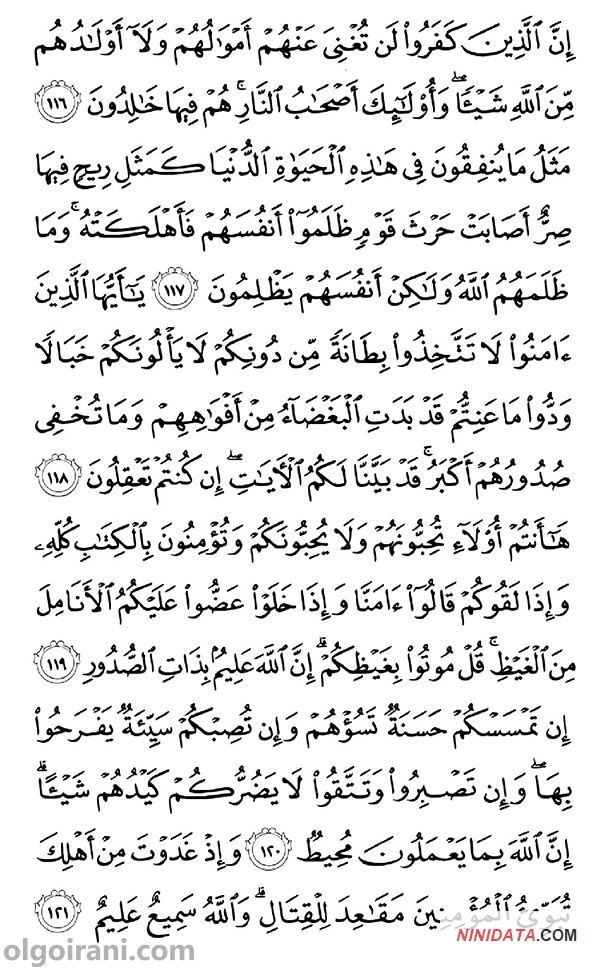 إِنَّ ٱلَّذِينَ كَفَرُوا۟ لَن تُغْنِىَ عَنْهُمْ أَمْوَٰلُهُمْ وَلَآ أَوْلَٰدُهُم
مِّنَ ٱللَّهِ شَيْـًٔا ۖ وَأُو۟لَٰٓئِكَ أَصْحَٰبُ ٱلنَّارِ ۚ هُمْ فِيهَا خَٰلِدُونَ ١١٦
مَثَلُ مَا يُنفِقُونَ فِى هَٰذِهِ ٱلْحَيَوٰةِ ٱلدُّنْيَا كَمَثَلِ رِيحٍ فِيهَا
صِرٌّ أَصَابَتْ حَرْثَ قَوْمٍ ظَلَمُوٓا۟ أَنفُسَهُمْ فَأَهْلَكَتْهُ ۚ وَمَا
ظَلَمَهُمُ ٱللَّهُ وَلَٰكِنْ أَنفُسَهُمْ يَظْلِمُونَ ١١٧ يَٰٓأَيُّهَا ٱلَّذِينَ
ءَامَنُوا۟ لَا تَتَّخِذُوا۟ بِطَانَةً مِّن دُونِكُمْ لَا يَأْلُونَكُمْ خَبَالًا
وَدُّوا۟ مَا عَنِتُّمْ قَدْ بَدَتِ ٱلْبَغْضَآءُ مِنْ أَفْوَٰهِهِمْ وَمَا تُخْفِى
صُدُورُهُمْ أَكْبَرُ ۚ قَدْ بَيَّنَّا لَكُمُ ٱلْءَايَٰتِ ۖ إِن كُنتُمْ تَعْقِلُونَ ١١٨
هَٰٓأَنتُمْ أُو۟لَآءِ تُحِبُّونَهُمْ وَلَا يُحِبُّونَكُمْ وَتُؤْمِنُونَ بِٱلْكِتَٰبِ كُلِّهِۦ
وَإِذَا لَقُوكُمْ قَالُوٓا۟ ءَامَنَّا وَإِذَا خَلَوْا۟ عَضُّوا۟ عَلَيْكُمُ ٱلْأَنَامِلَ
مِنَ ٱلْغَيْظِ ۚ قُلْ مُوتُوا۟ بِغَيْظِكُمْ ۗ إِنَّ ٱللَّهَ عَلِيمٌۢ بِذَاتِ ٱلصُّدُورِ ١١٩
إِن تَمْسَسْكُمْ حَسَنَةٌ تَسُؤْهُمْ وَإِن تُصِبْكُمْ سَيِّئَةٌ يَفْرَحُوا۟
بِهَا ۖ وَإِن تَصْبِرُوا۟ وَتَتَّقُوا۟ لَا يَضُرُّكُمْ كَيْدُهُمْ شَيْـًٔا ۗ
إِنَّ ٱللَّهَ بِمَا يَعْمَلُونَ مُحِيطٌ ١٢٠ وَإِذْ غَدَوْتَ مِنْ أَهْلِكَ
تُبَوِّئُ ٱلْمُؤْمِنِينَ مَقَٰعِدَ لِلْقِتَالِ ۗ وَٱللَّهُ سَمِيعٌ عَلِيمٌ ١٢١
NINIDATA.COM
olgoirani.com